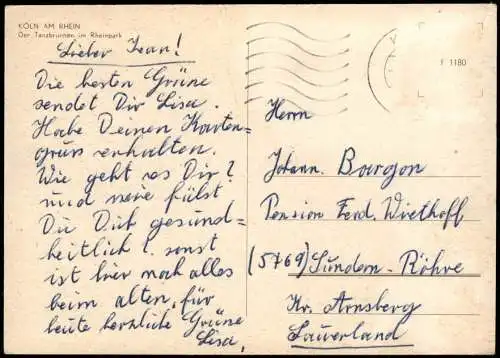 KÖLN AM RHEIN
Der Tanzbrunnen im Rheinpark
Lieber Jean!
Die besten Grüne
sendet Dir Lisa.
Habe Deinen Karten=
gruss erhalten.
Wie geht es Dir?
und wie fülst
Du Dich gesund=
heitlich? sonst
ist hier noch alles
beim alten, für
heute herzliche Grüne
Lisa,
f 1180
Herrn
Johann. Bargon
Pension Ferd. Wiethoff
(5769) Sundern-Röhre
Kr. Arnsberg
Sauerland